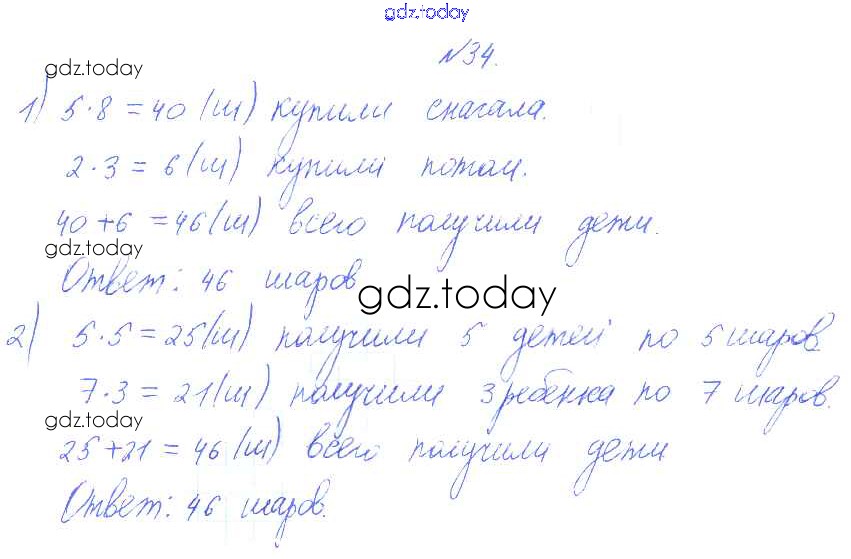 gdz.today
№34.
gdz.today
1) 5·8 = 40 (ш) купили сначала.
2·3 = 6 (ш) купили потом.
40+6 = 46 (ш) всего получили дети.
gdz.today
Ответ: 46 шаров
gdz.today
2) 5·5 = 25 (ш) получили 5 детей по 5 шаров.
7·3 = 21 (ш) получили 3 ребёнка по 7 шаров.
gdz.today
25+21 = 46 (ш) всего получили дети
Ответ: 46 шаров.